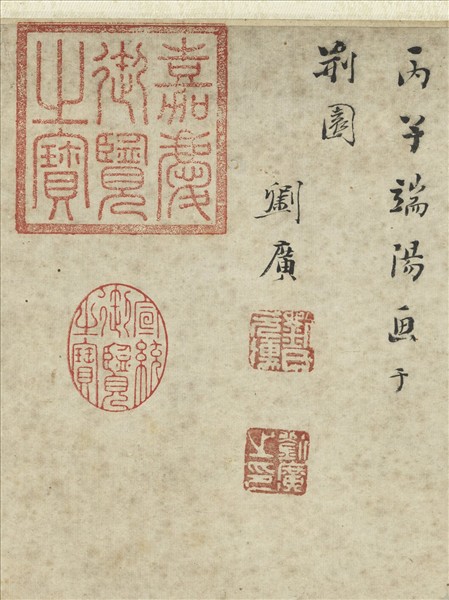 丙午端陽画于
荆園
劉廣
劉廣之印
嘉慶御覽之寶
宣統御覽之寶